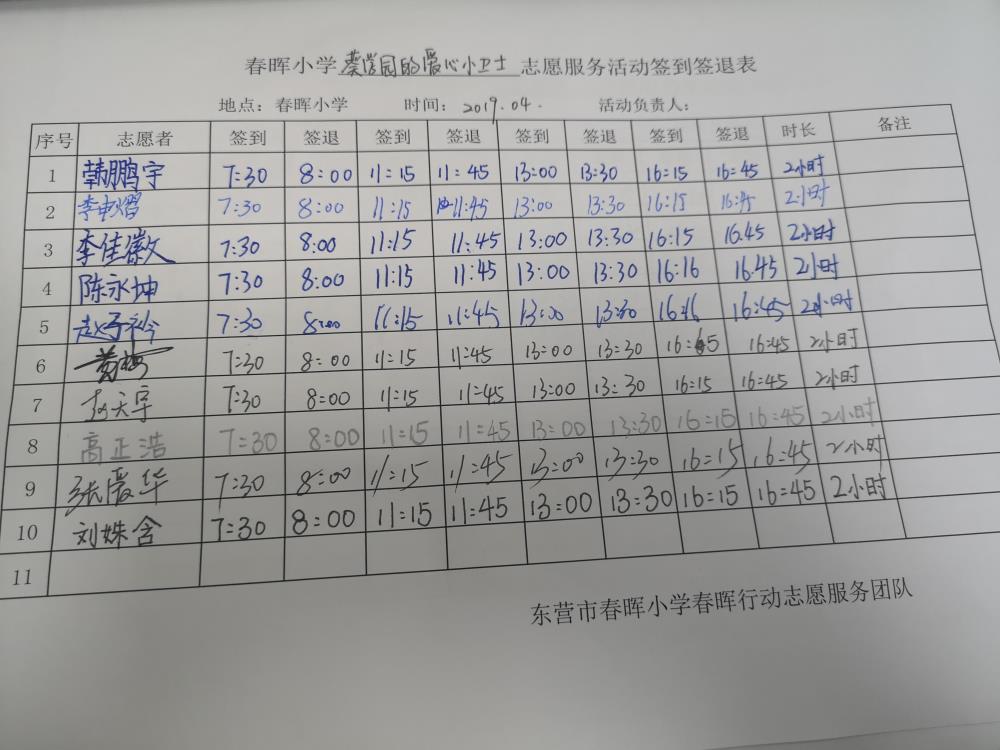 春晖小学 葵学园的爱心小卫士 志愿服务活动签到签退表
地点：春晖小学 时间：2019.04. 活动负责人：
序号 志愿者 签到 签退 签到 签退 签到 签退 签到 签退 时长 备注
1 韩鹏宇 7:30 8:00 11:15 11:45 13:00 13:30 16:15 16:45 2小时
2 李中熠 7:30 8:00 11:15 11:45 13:00 13:30 16:15 16:45 2小时
3 李佳徽 7:30 8:00 11:15 11:45 13:00 13:30 16:15 16.45 2小时
4 陈永坤 7:30 8:00 11:15 11:45 13:00 13:30 16:16 16.45 2小时
5 赵子衿 7:30 8:00 11:15 11:45 13:00 13:30 16:16 16:45 2小时
6 7:30 8:00 11:15 11:45 13:00 13:30 16:15 16:45 2小时
7 赵天宇 7:30 8:00 11:15 11:45 13:00 13:30 16:15 16:45 2小时
8 高正浩 7:30 8:00 11:15 11:45 13:00 13:30 16:15 16:45 2小时
9 张爱华 7:30 8:00 11:15 11:45 13:00 13:30 16:15 16:45 2小时
10 刘姝含 7:30 8:00 11:15 11:45 13:00 13:30 16:15 16:45 2小时
11
东营市春晖小学春晖行动志愿服务团队